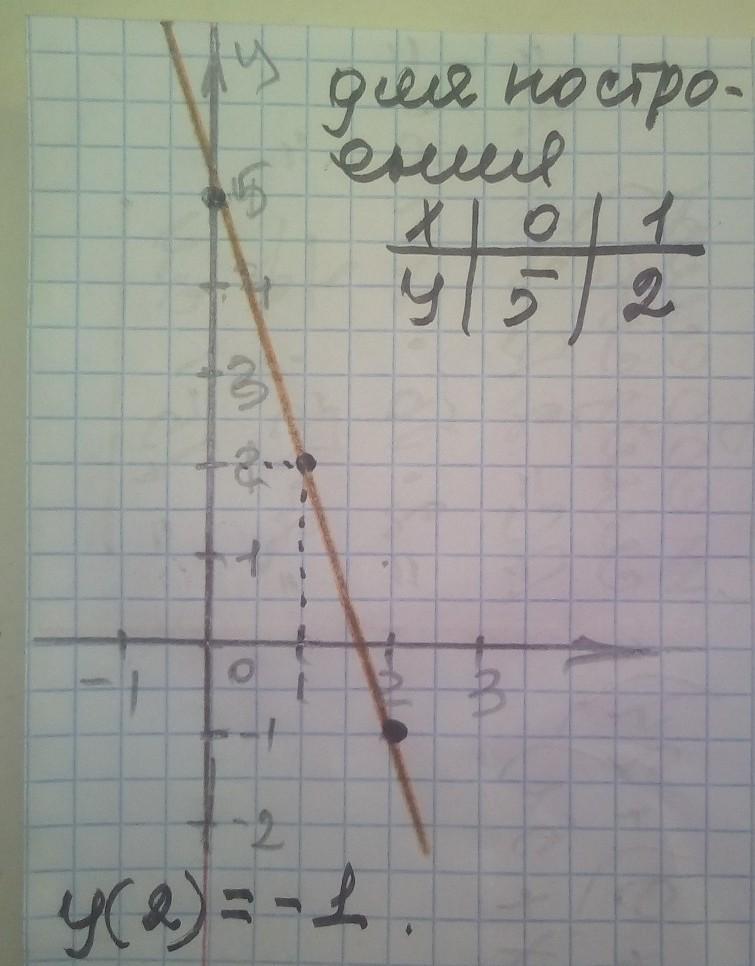 y
для постро-
ения
x | 0 | 1
y | 5 | 2
5
4
3
2
1
-1 0 1 2 3
-1
-2
y(2) = -1.